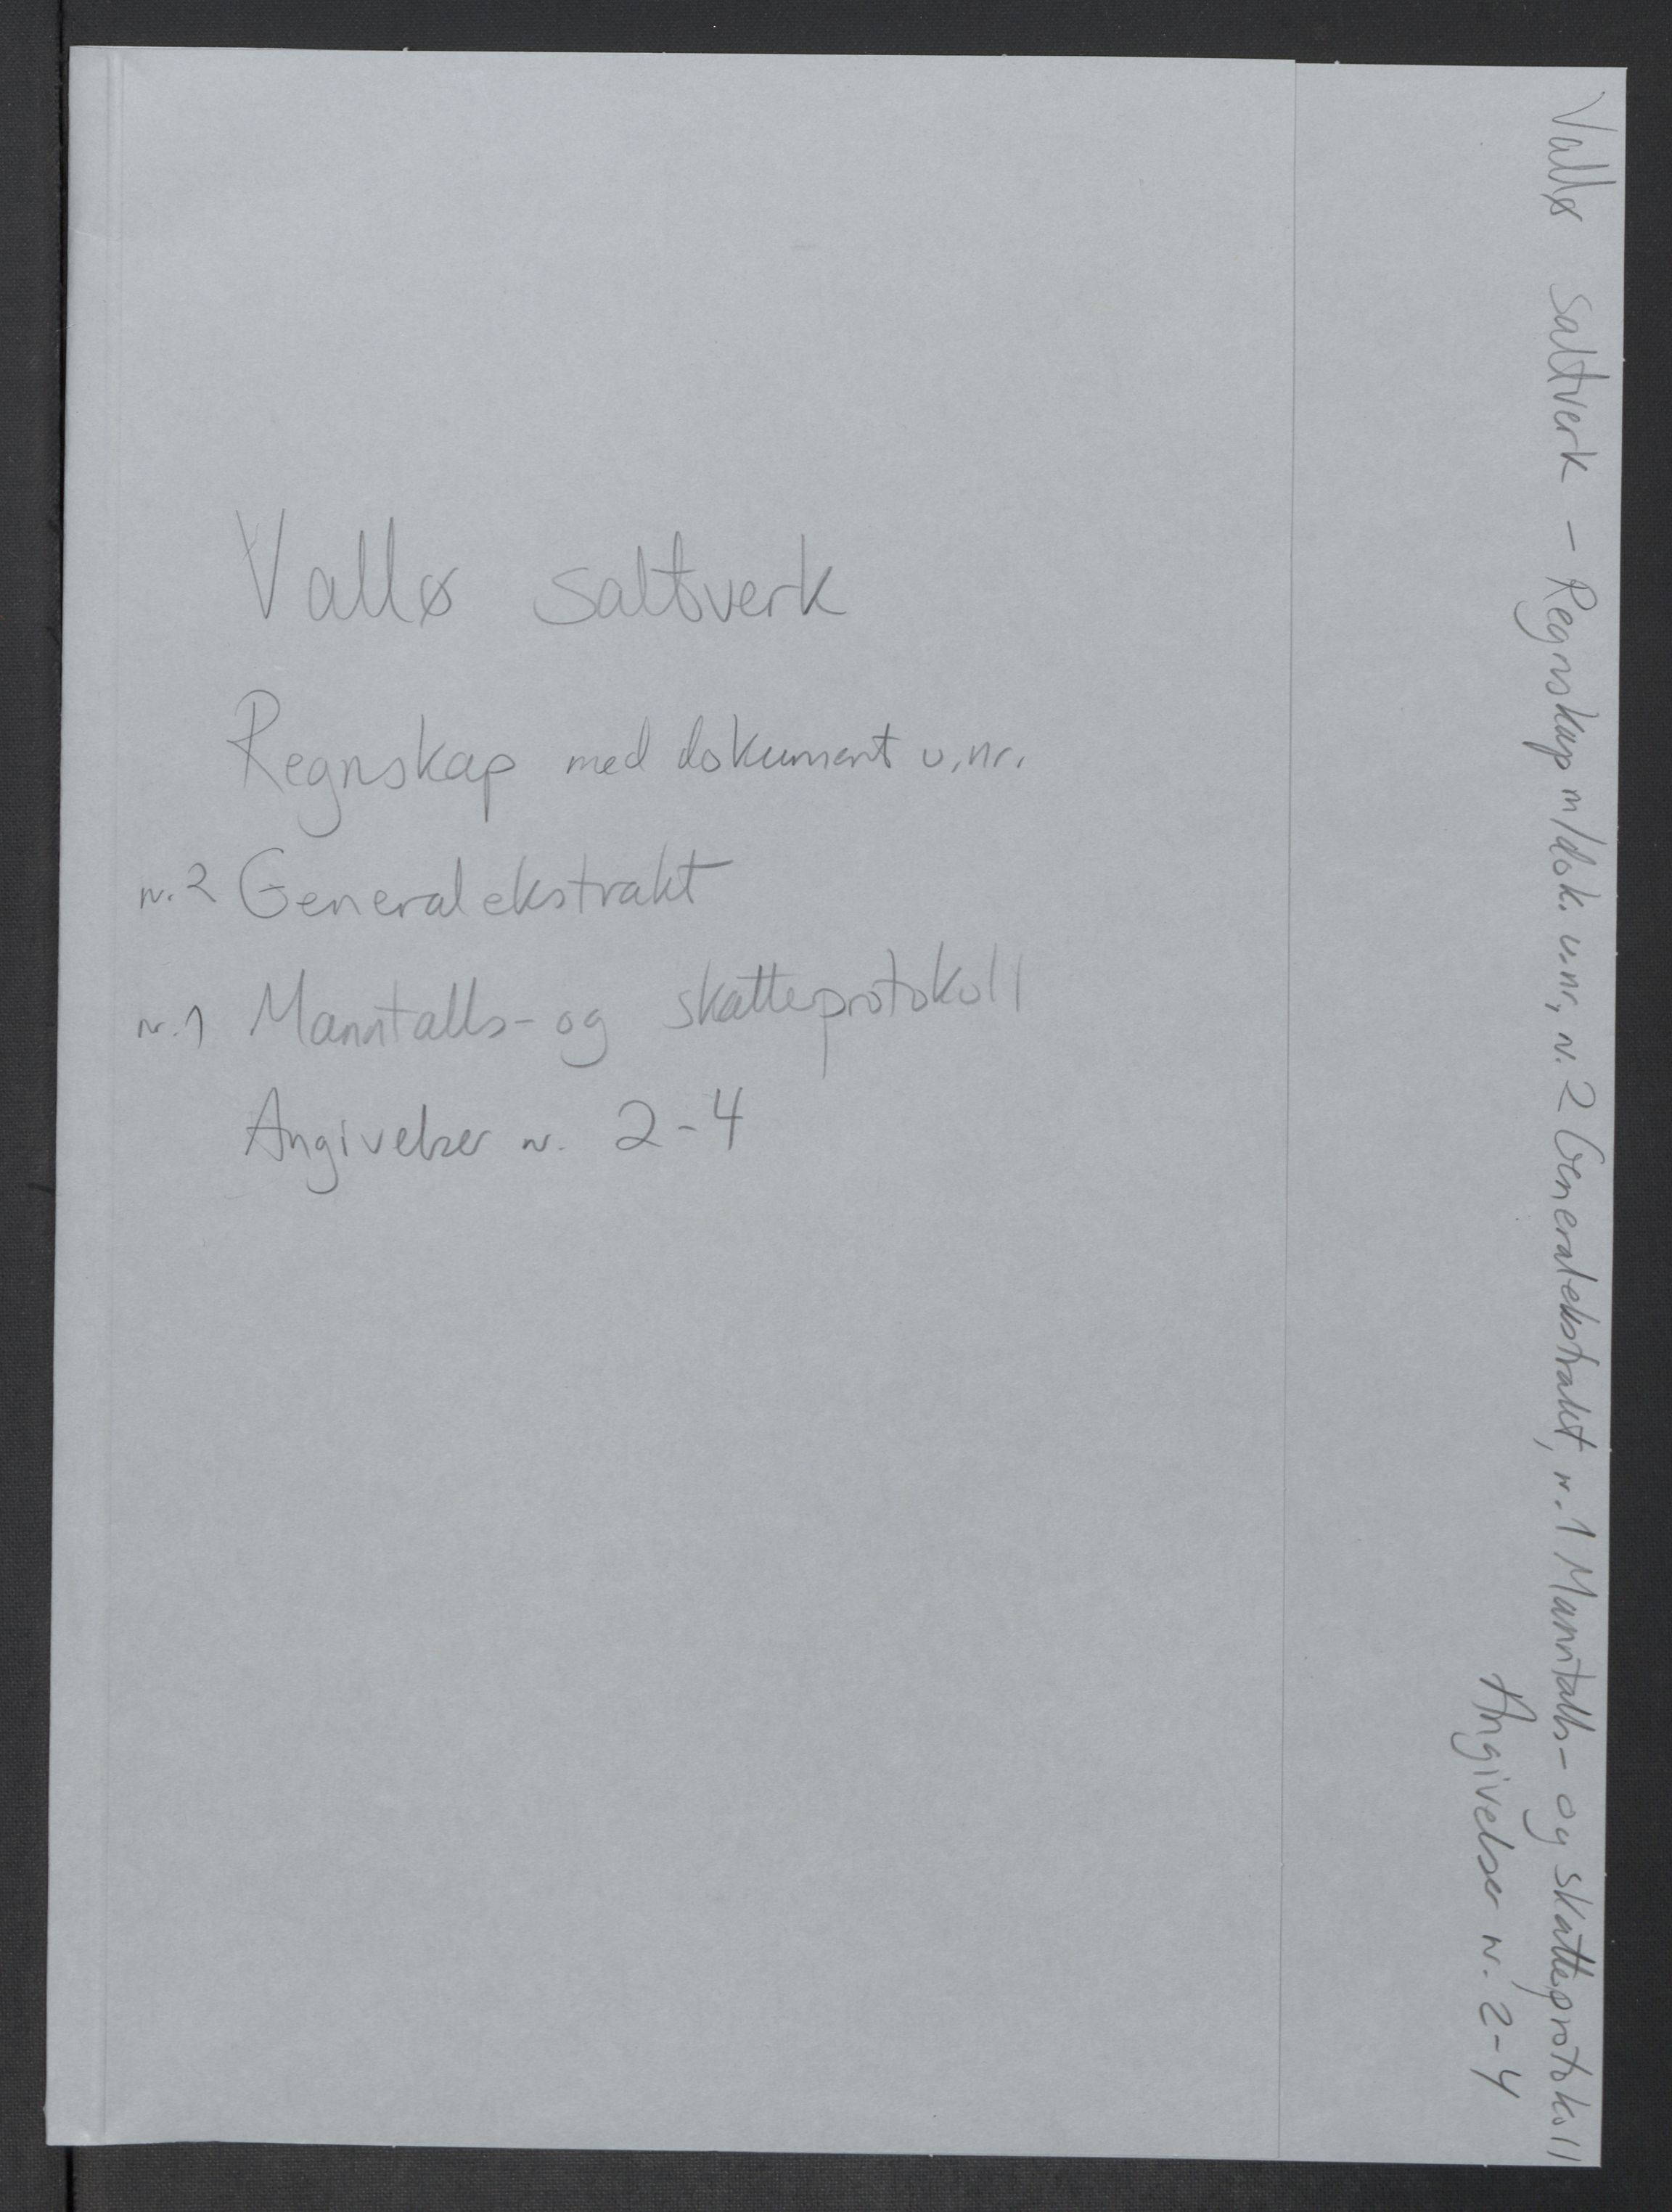 Vallø saltverk
Regnskap med dokument u.nr.
nr. 2 Generalekstrakt
nr. 1 Manntalls- og skatteprotokoll
Angivelser nr. 2-4
Vallø saltverk - Regnskap m/dok. u.nr, nr. 2 Generalekstrakt, nr. 1 Manntalls- og skatteprotokoll
Angivelser nr. 2-4